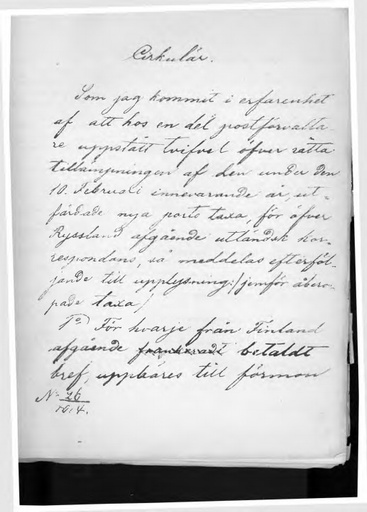 Cirkulär.
Som jag kommit i erfarenhet
af att hos en del postförvalta
re uppstått tvifvel öfver rätta
tillämpningen af den under den
10. Februari innevarande år, ut-
färdade nya porto taxa, för öfver
Ryssland afgående utländsk kor-
respondans, så meddelas efterföl-
jande till upplysning: (jemför åbero-
pade taxa)
1o) För hvarje från Finland
afgående frankeradt betaldt
bref, uppbäres till förmon
No 26
16/4.